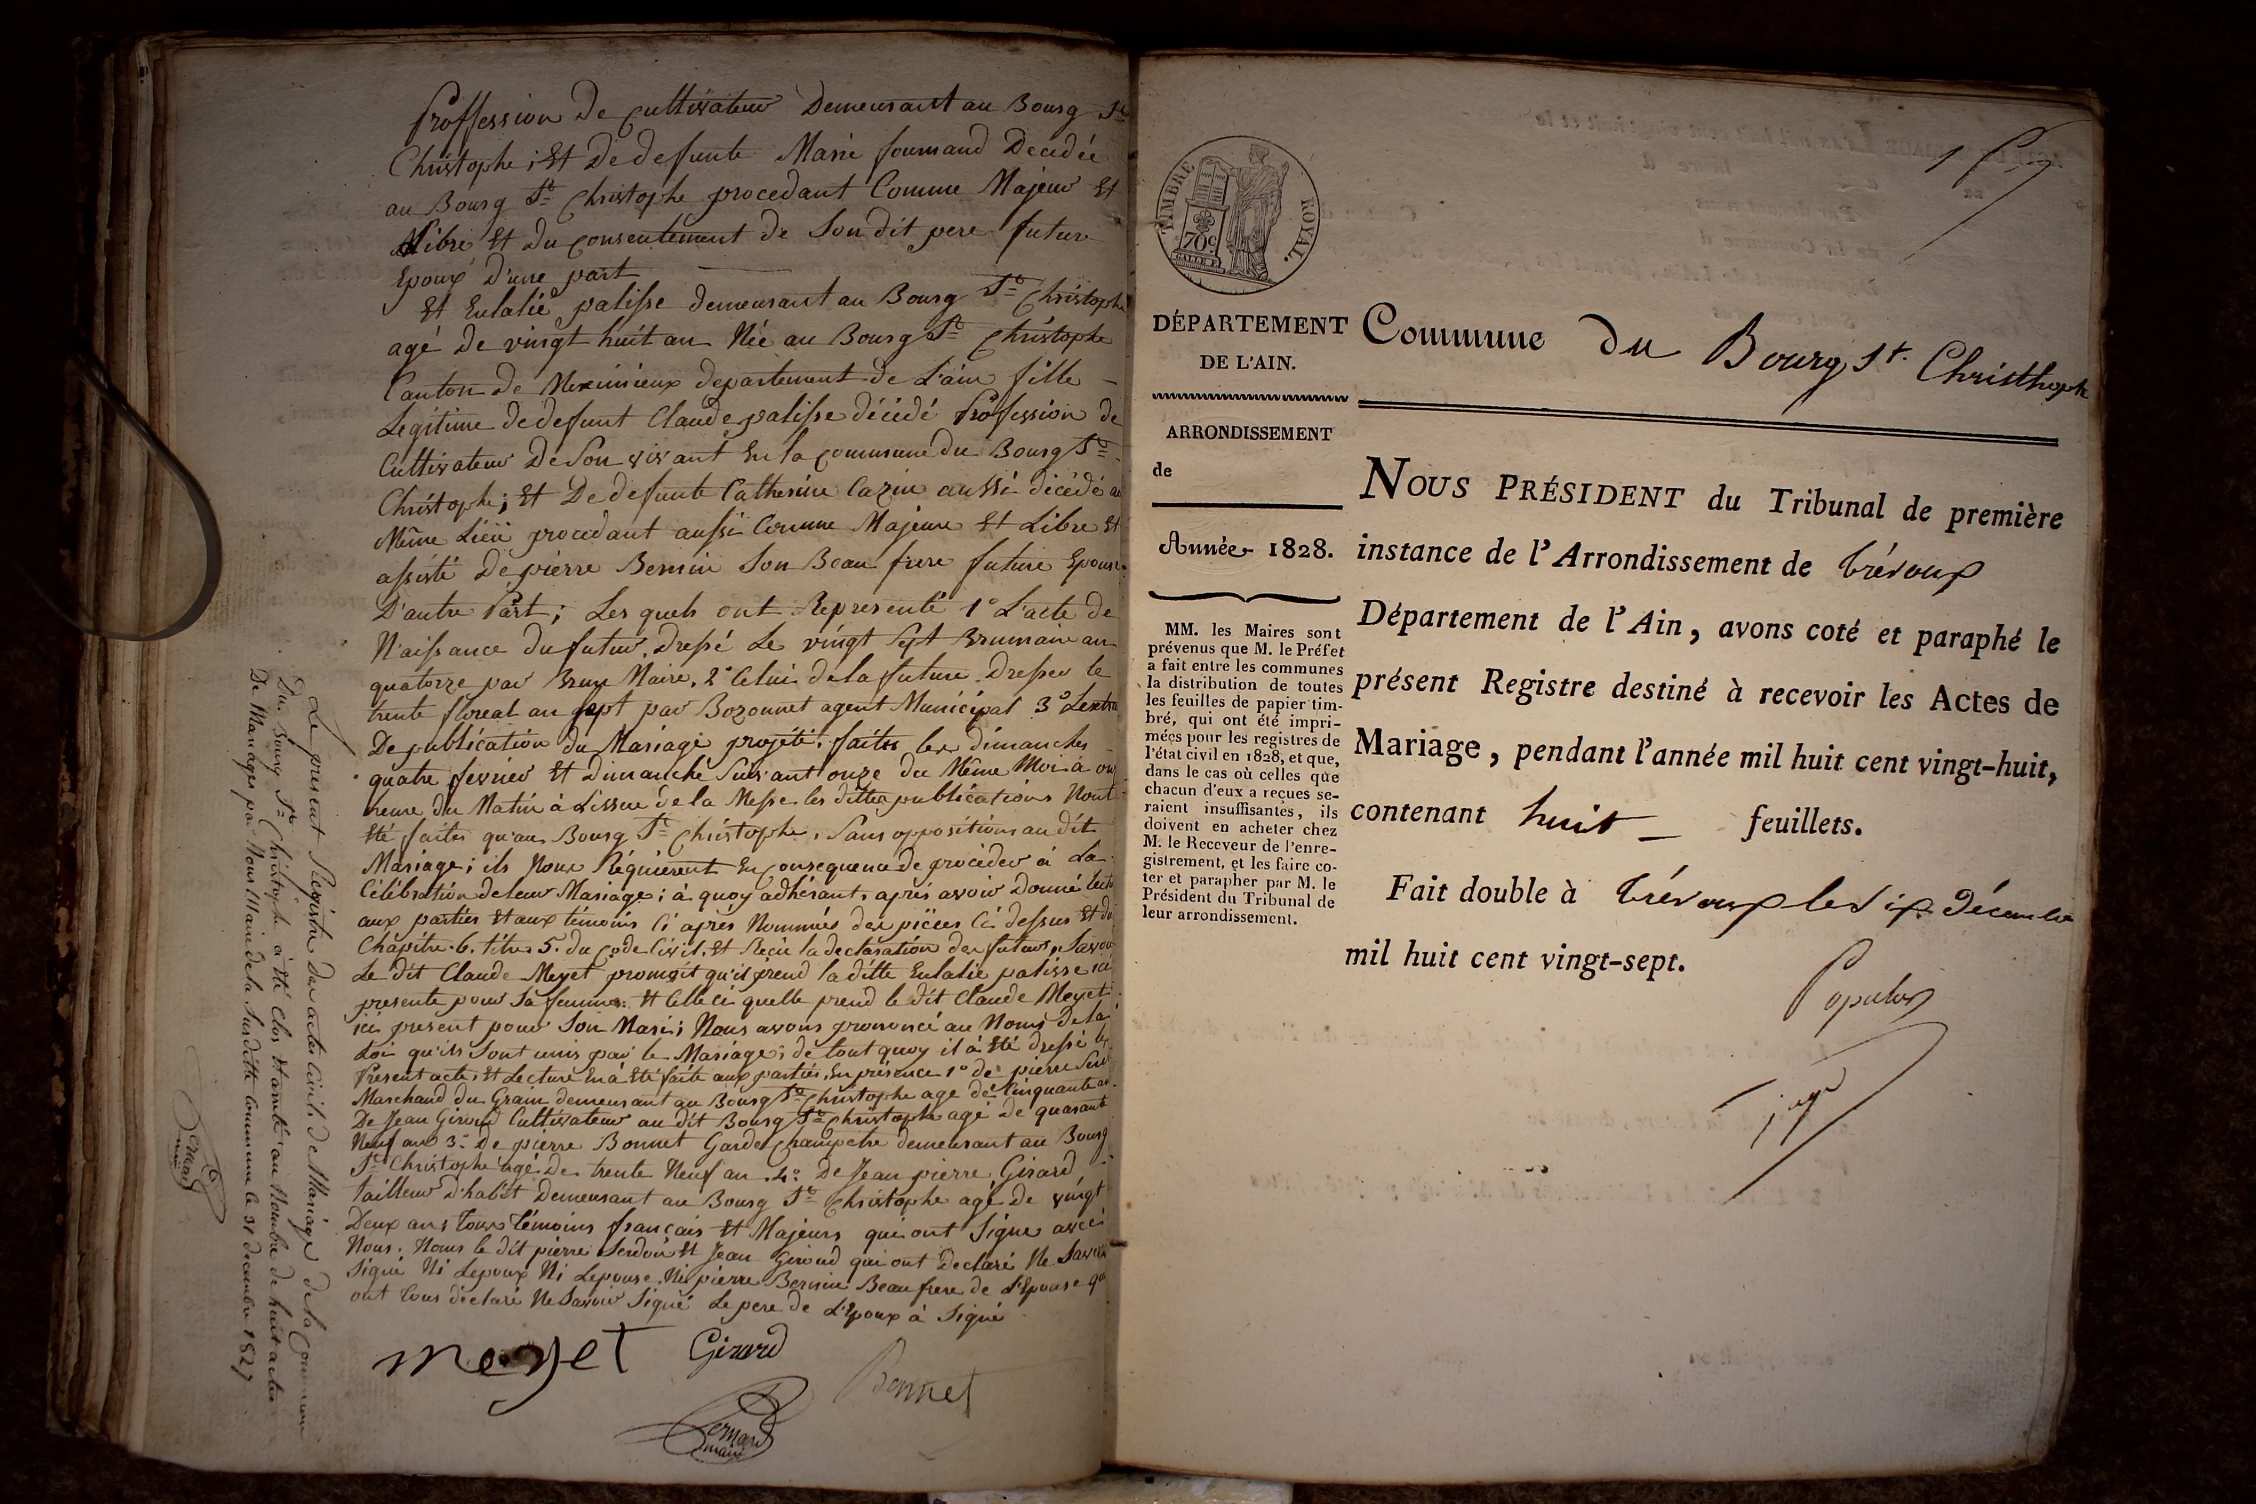 Proffession de Cultivateur Demeurant au Bourg St
Christophe ; Et De defunte Marie fournand Decedée
au Bourg St Christophe procedant Comme Majeur Et
Libre Et du Consentement de Son dit pere futur
Epoux d'une part
Et Eulalie palisse demeurant au Bourg St Christophe
agé De vingt huit an Née au Bourg St Christophe
Canton de Meximieux departement de L'ain fille
Legitime de defunt Claude palisse décédé Profession de
Cultivateur De Son vivant En la commune du Bourg St
Christophe ; Et De defunte Catherine Cazin aussi décédé au
Même Lieü procedant aussi Comme Majeure Et Libre Et
assisté De pierre Bernin Son Beau frere future Epouse
D'autre Part ; Les quels ont Representé 1° L'acte de
Naissance du futur, Dressé Le vingt Sept Brumaire an
quatorze par Brun Maire, 2° Celui de la future Dressée le
trente floreal an Sept par Bozonnet agent Municipal 3° Lextra
De publication du Mariage projété, faites les dimanches
quatre fevrier Et Dimanche Suivant onze du Même Mois à on
heure du Matin à Lissue de la Messe les dittes publications Nont
Eté faites qu'au Bourg St Christophe, Sans oppositions au dit
Mariage ; ils Nous Réquierent En Consequence de procèder à La
Célébration de leur Mariage ; à quoy adhérant, après avoir Donné lect
aux parties Et aux témoins Ci après Nommés des pièces Ci dessus Et du
Chapitre 6. titre 5. du Code Civil, Et Reçu la declaration des futurs, Savoir
Le dit Claude Meyet promet qu'il prend la ditte Eulalie palisse ici
presente pour Sa femme : Et Celle ci quelle prend le dit Claude Meyet
ici present pour Son Mari ; Nous avons prononcé au Nom De la
Loi qu'ils Sont unis par le Mariage ; de tout quoy il à Eté dressé le
Present acte, Et Lecture En à Eté faite aux parties, En présence 1° de pierre
Marchand du Grain demeurant au Bourg St Christophe age de Cinquante an
De Jean Giroud Cultivateur au dit Bourg St Christophe agé De quarant
Neuf ans 3° De pierre Bonnet Garde Champetre demeurant au Bourg
St Christophe agé De trente Neuf an . 4° De Jean pierre Girard
tailleur D'habit Demeurant au Bourg St Christophe agé De vingt
Deux ans Tous témoins français Et Majeurs qui ont Signe avec
Nous. Nons le dit pierre Et Jean Giroud qui ont Declaré Ne Savoir
Signé Ni Lepoux Ni Lepouse, Ni pierre Bernin Beau frere de L'Epouse qui
ont Tous déclaré Ne Savoir Signé Le pere de L'Epoux à Signé
meyet Girard
Bonnet
Bernard
maire
Le present Registre des actes Civils de Mariage de la Commune
Du Bourg St Christophe à été Clos Et arreté au Nombre de huit actes
De Mariages par Nous Maire de la Susditte Commune le 31 decembre 1827
Bernard
maire
1 P
TIMBRE ROYAL.
70c.
DÉPARTEMENT
DE L'AIN.
ARRONDISSEMENT
de
Année 1828.
MM. les Maires sont
prévenus que M. le Préfet
a fait entre les communes
la distribution de toutes
les feuilles de papier tim-
bré, qui ont été impri-
mées pour les registres de
l'état civil en 1828, et que,
dans le cas où celles que
chacun d'eux a reçues se-
raient insuffisantes, ils
doivent en acheter chez
M. le Receveur de l'enre-
gistrement, et les faire co-
ter et parapher par M. le
Président du Tribunal de
leur arrondissement.
Commune du Bourg St. Christhophe
NOUS PRÉSIDENT du Tribunal de première
instance de l'Arrondissement de trévoux
Département de l'Ain, avons coté et paraphé le
présent Registre destiné à recevoir les Actes de
Mariage, pendant l'année mil huit cent vingt-huit,
contenant huit feuillets.
Fait double à trévoux le six décembre
mil huit cent vingt-sept.
Populus
juge